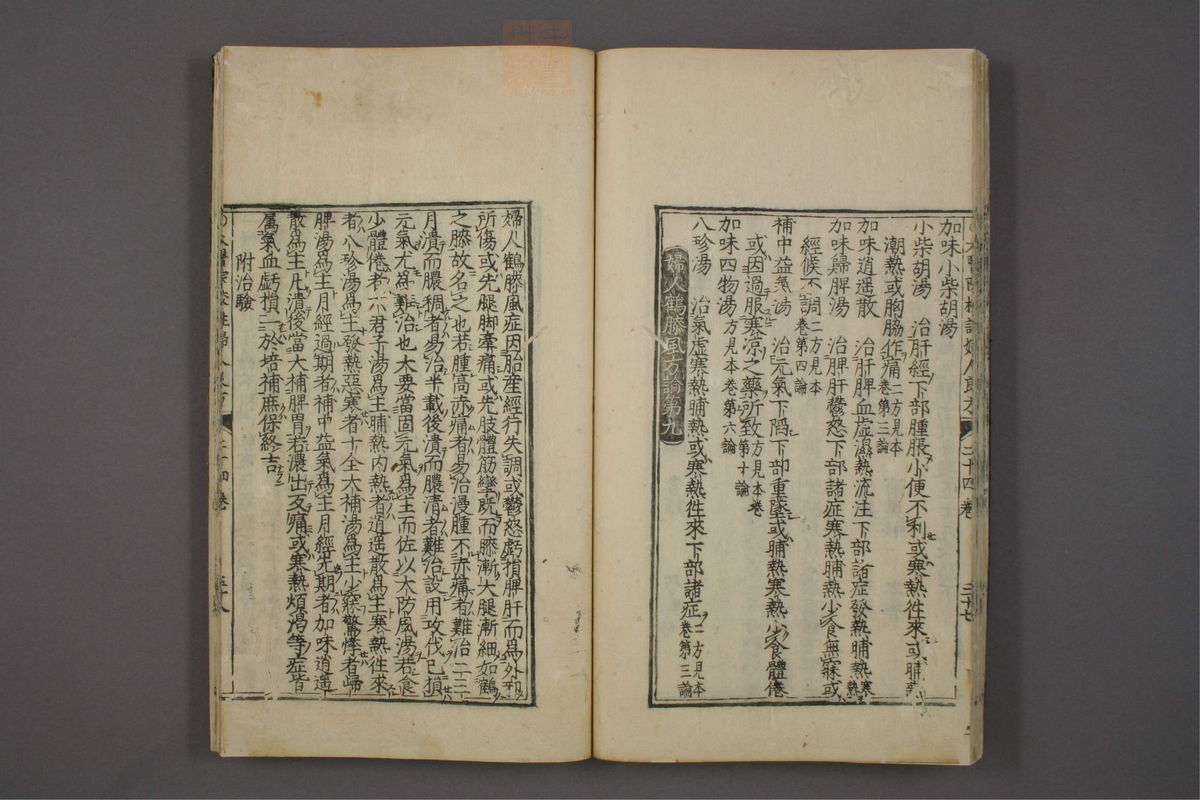 太醫院校註婦人良方 二十四卷 三十七
加味小柴胡湯
小柴胡湯 治肝經下部腫脹小便不利或寒熱徃來或晡
潮熱或胸脇作痛二方見本卷第三論
加味逍遥散 治肝脾血虛濕熱流注下部諸症發熱晡熱寒熱
加味歸脾湯 治脾肝鬱怒下部諸症寒熱晡熱少食無寐或
經候不調二方見本卷第四論
補中益氣湯 治元氣下陷下部重墜或晡熱寒熱少食體倦
或因過服寒凉之藥所致方見本卷第十論
加味四物湯方見本卷第六論
八珍湯 治氣虛寒熱晡熱或寒熱徃來下部諸症二方見本卷第三論
婦人鶴膝風方論第九
婦人鶴膝風症因胎産經行失調或鬱怒虧損脾肝而爲外邪
所傷或先腿脚牽痛或先肢體筋攣既而膝漸大腿漸細如鶴
之膝故名之也若腫高赤痛者易治漫腫不赤痛者難治二三
月潰而膿稠者易治半載後潰而膿清者難治設用攻伐已損
元氣尤爲難治也大要當固元氣爲主而佐以大防風湯若食
少體倦者六君子湯爲主晡熱内熱者逍遥散爲主寒熱徃來
者八珍湯爲主發熱惡寒者十全大補湯爲主少寐驚悸者歸
脾湯爲主月經過期者補中益氣爲主月經先期者加味逍遥
散爲主凡潰後當大補脾胃若膿出反痛或寒熱煩渇等症皆
屬氣血虧損一於培補庶保終吉
附治驗
二十四卷 三十八